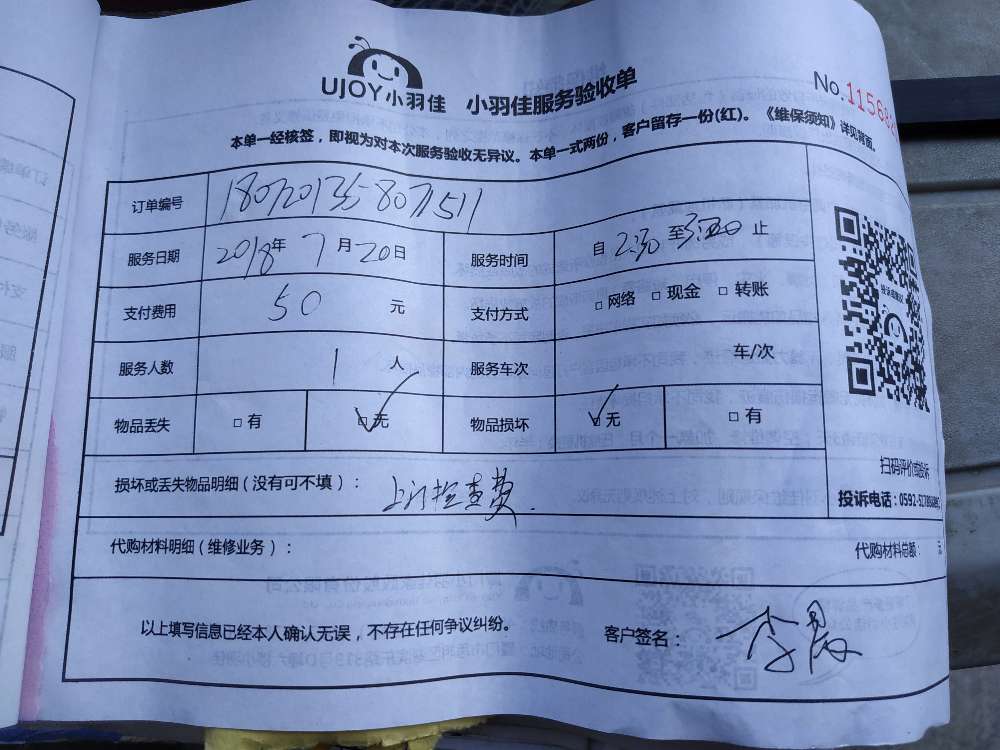 UJOY小羽佳 小羽佳服务验收单
No.115682
本单一经核签，即视为对本次服务验收无异议。本单一式两份，客户留存一份(红)。《维保须知》详见背面。
订单编号
服务日期 2018年 7月20日 服务时间 自 2:30 至 3:00 止
支付费用 50 元 支付方式 □网络 □现金 □转账
服务人数 1 人 服务车次 车/次
物品丢失 □有 ☑无 物品损坏 ☑无 □有
损坏或丢失物品明细（没有可不填）： 上门检查费.
扫码评价或投诉
投诉电话：0592-
代购材料明细（维修业务）： 代购材料总额： 元
以上填写信息已经本人确认无误，不存在任何争议纠纷。 客户签名： 李晨